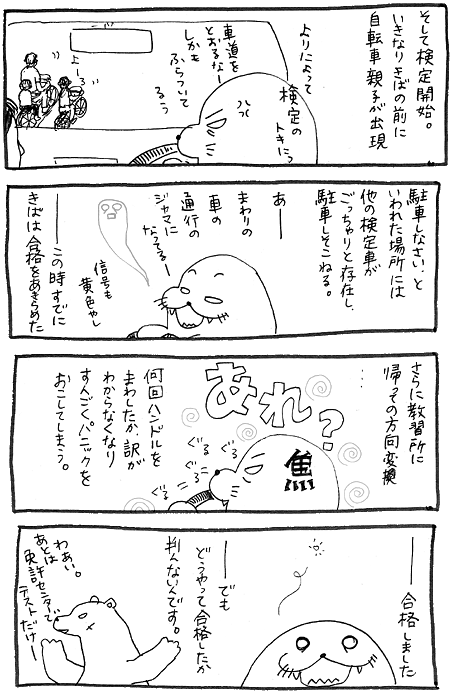 そして検定開始。
いきなりきばの前に
自転車親子が出現
よりによって
検定の
トキにっ
車道を
とおるなー
しかも
ふらついて
るぅ
よーろ
駐車しなさい、と
いわれた場所には
他の検定車が
ごっちゃりと存在し、
駐車しそこねる。
あー
まわりの
車の
通行の
ジャマに
なってるー
信号も
黄色やし
――この時すでに
きばは合格をあきらめた
さらに教習所に
帰っての方向変換
…
あれ?
魚
ぐる
ぐる
ぐる
ぐる
何回ハンドルを
まわしたか、訳が
わからなくなり
すんごくパニックを
おこしてしまう。
――合格しました
――でも
どうやって合格したか
判んないんです。
わあい。
あとは
免許センターで
テストだけー